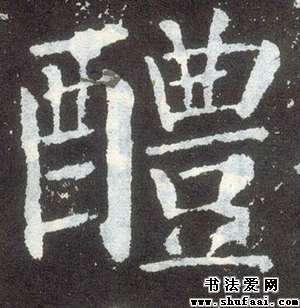 醴
书法爱网
www.shufaai.com